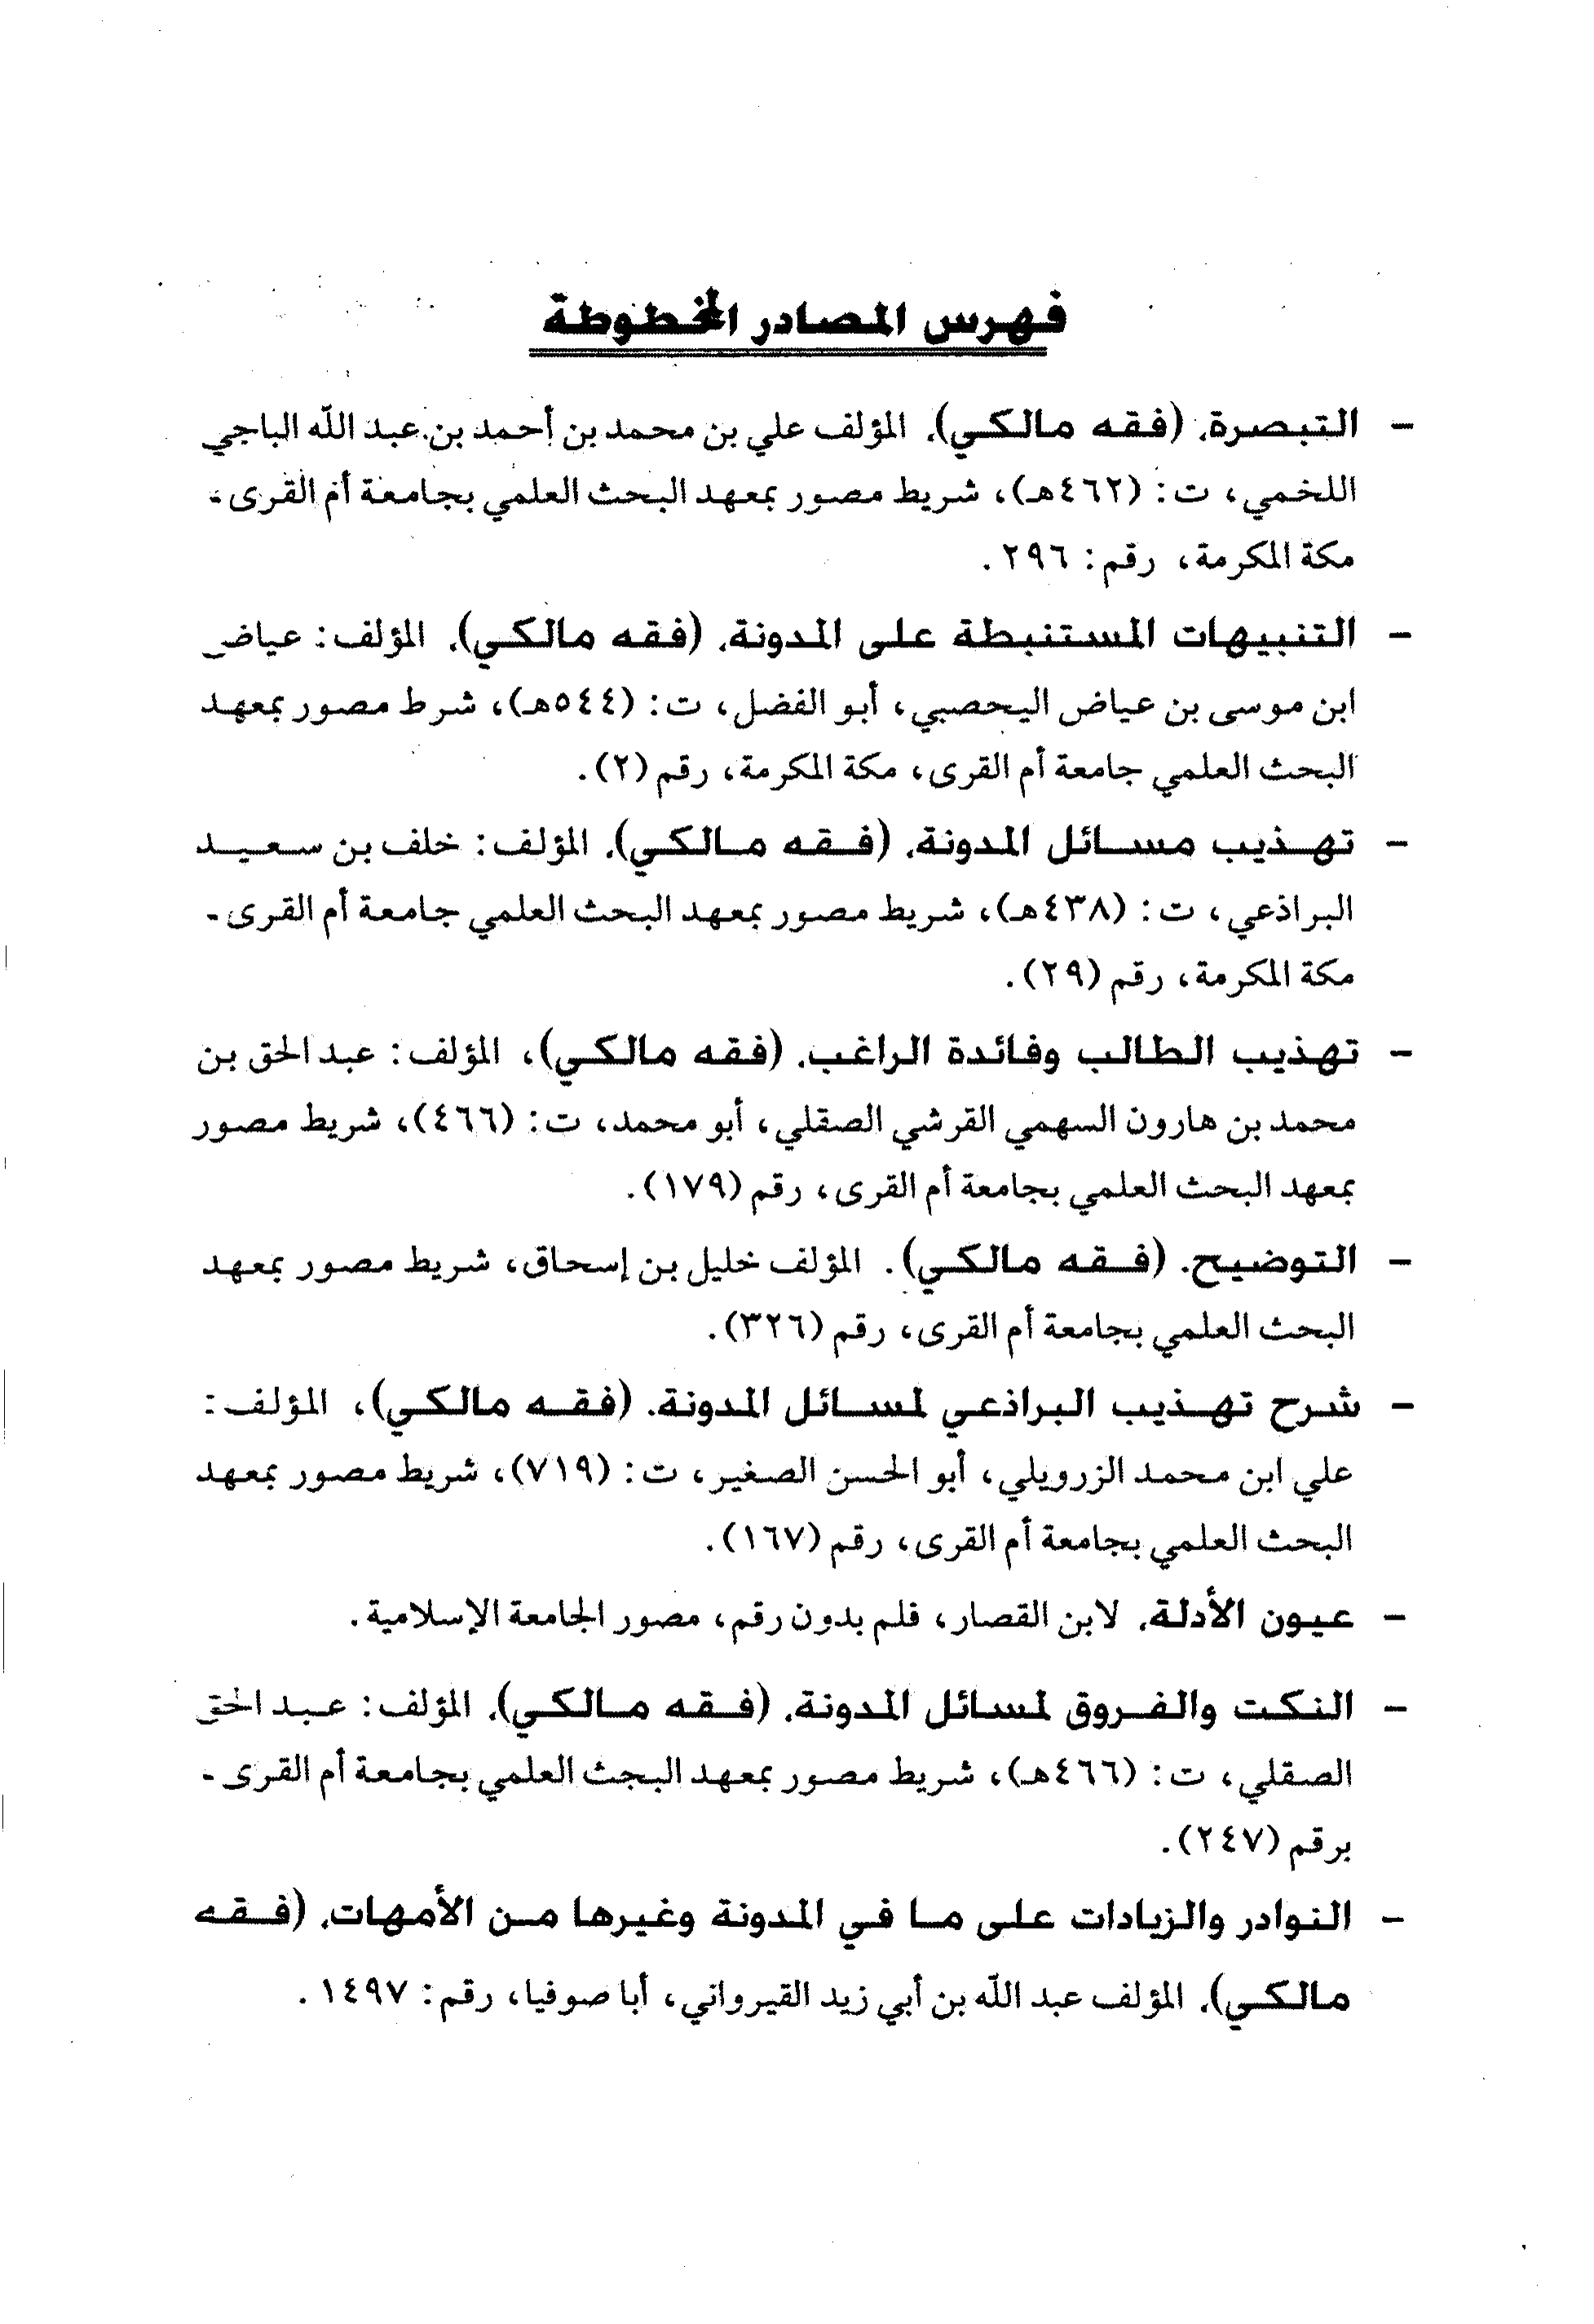 فهرس المصادر المخطوطة
- التبصرة. (فقه مالكي). المؤلف علي بن محمد بن أحمد بن عبد الله الباجي
اللخمي، ت: (٤٦٢هـ)، شريط مصور بمعهد البحث العلمي بجامعة أم القرى -
مكة المكرمة، رقم: ٢٩٦.
- التنبيهات المستنبطة على المدونة. (فقه مالكي). المؤلف: عياض
ابن موسى بن عياض اليحصبي، أبو الفضل، ت: (٥٤٤هـ)، شرط مصور بمعهد
البحث العلمي جامعة أم القرى، مكة المكرمة، رقم (٢).
- تهذيب مسائل المدونة. (فقه مالكي). المؤلف: خلف بن سعيد
البراذعي، ت: (٤٣٨هـ)، شريط مصور بمعهد البحث العلمي جامعة أم القرى -
مكة المكرمة، رقم (٢٩).
- تهذيب الطالب وفائدة الراغب. (فقه مالكي)، المؤلف: عبد الحق بن
محمد بن هارون السهمي القرشي الصقلي، أبو محمد، ت: (٤٦٦)، شريط مصور
بمعهد البحث العلمي بجامعة أم القرى، رقم (١٧٩).
- التوضيح. (فقه مالكي). المؤلف خليل بن إسحاق، شريط مصور بمعهد
البحث العلمي بجامعة أم القرى، رقم (٣٢٦).
- شرح تهذيب البراذعي لمسائل المدونة. (فقه مالكي)، المؤلف:
علي ابن محمد الزرويلي، أبو الحسن الصغير، ت: (٧١٩)، شريط مصور بمعهد
البحث العلمي بجامعة أم القرى، رقم (١٦٧).
- عيون الأدلة. لابن القصار، فلم بدون رقم، مصور الجامعة الإسلامية.
- النكت والفروق لمسائل المدونة. (فقه مالكي). المؤلف: عبد الحق
الصقلي، ت: (٤٦٦هـ)، شريط مصور بمعهد البحث العلمي بجامعة أم القرى -
برقم (٢٤٧).
- النوادر والزيادات على ما في المدونة وغيرها من الأمهات. (فقه
مالكي). المؤلف عبد الله بن أبي زيد القيرواني، أبا صوفيا، رقم: ١٤٩٧.